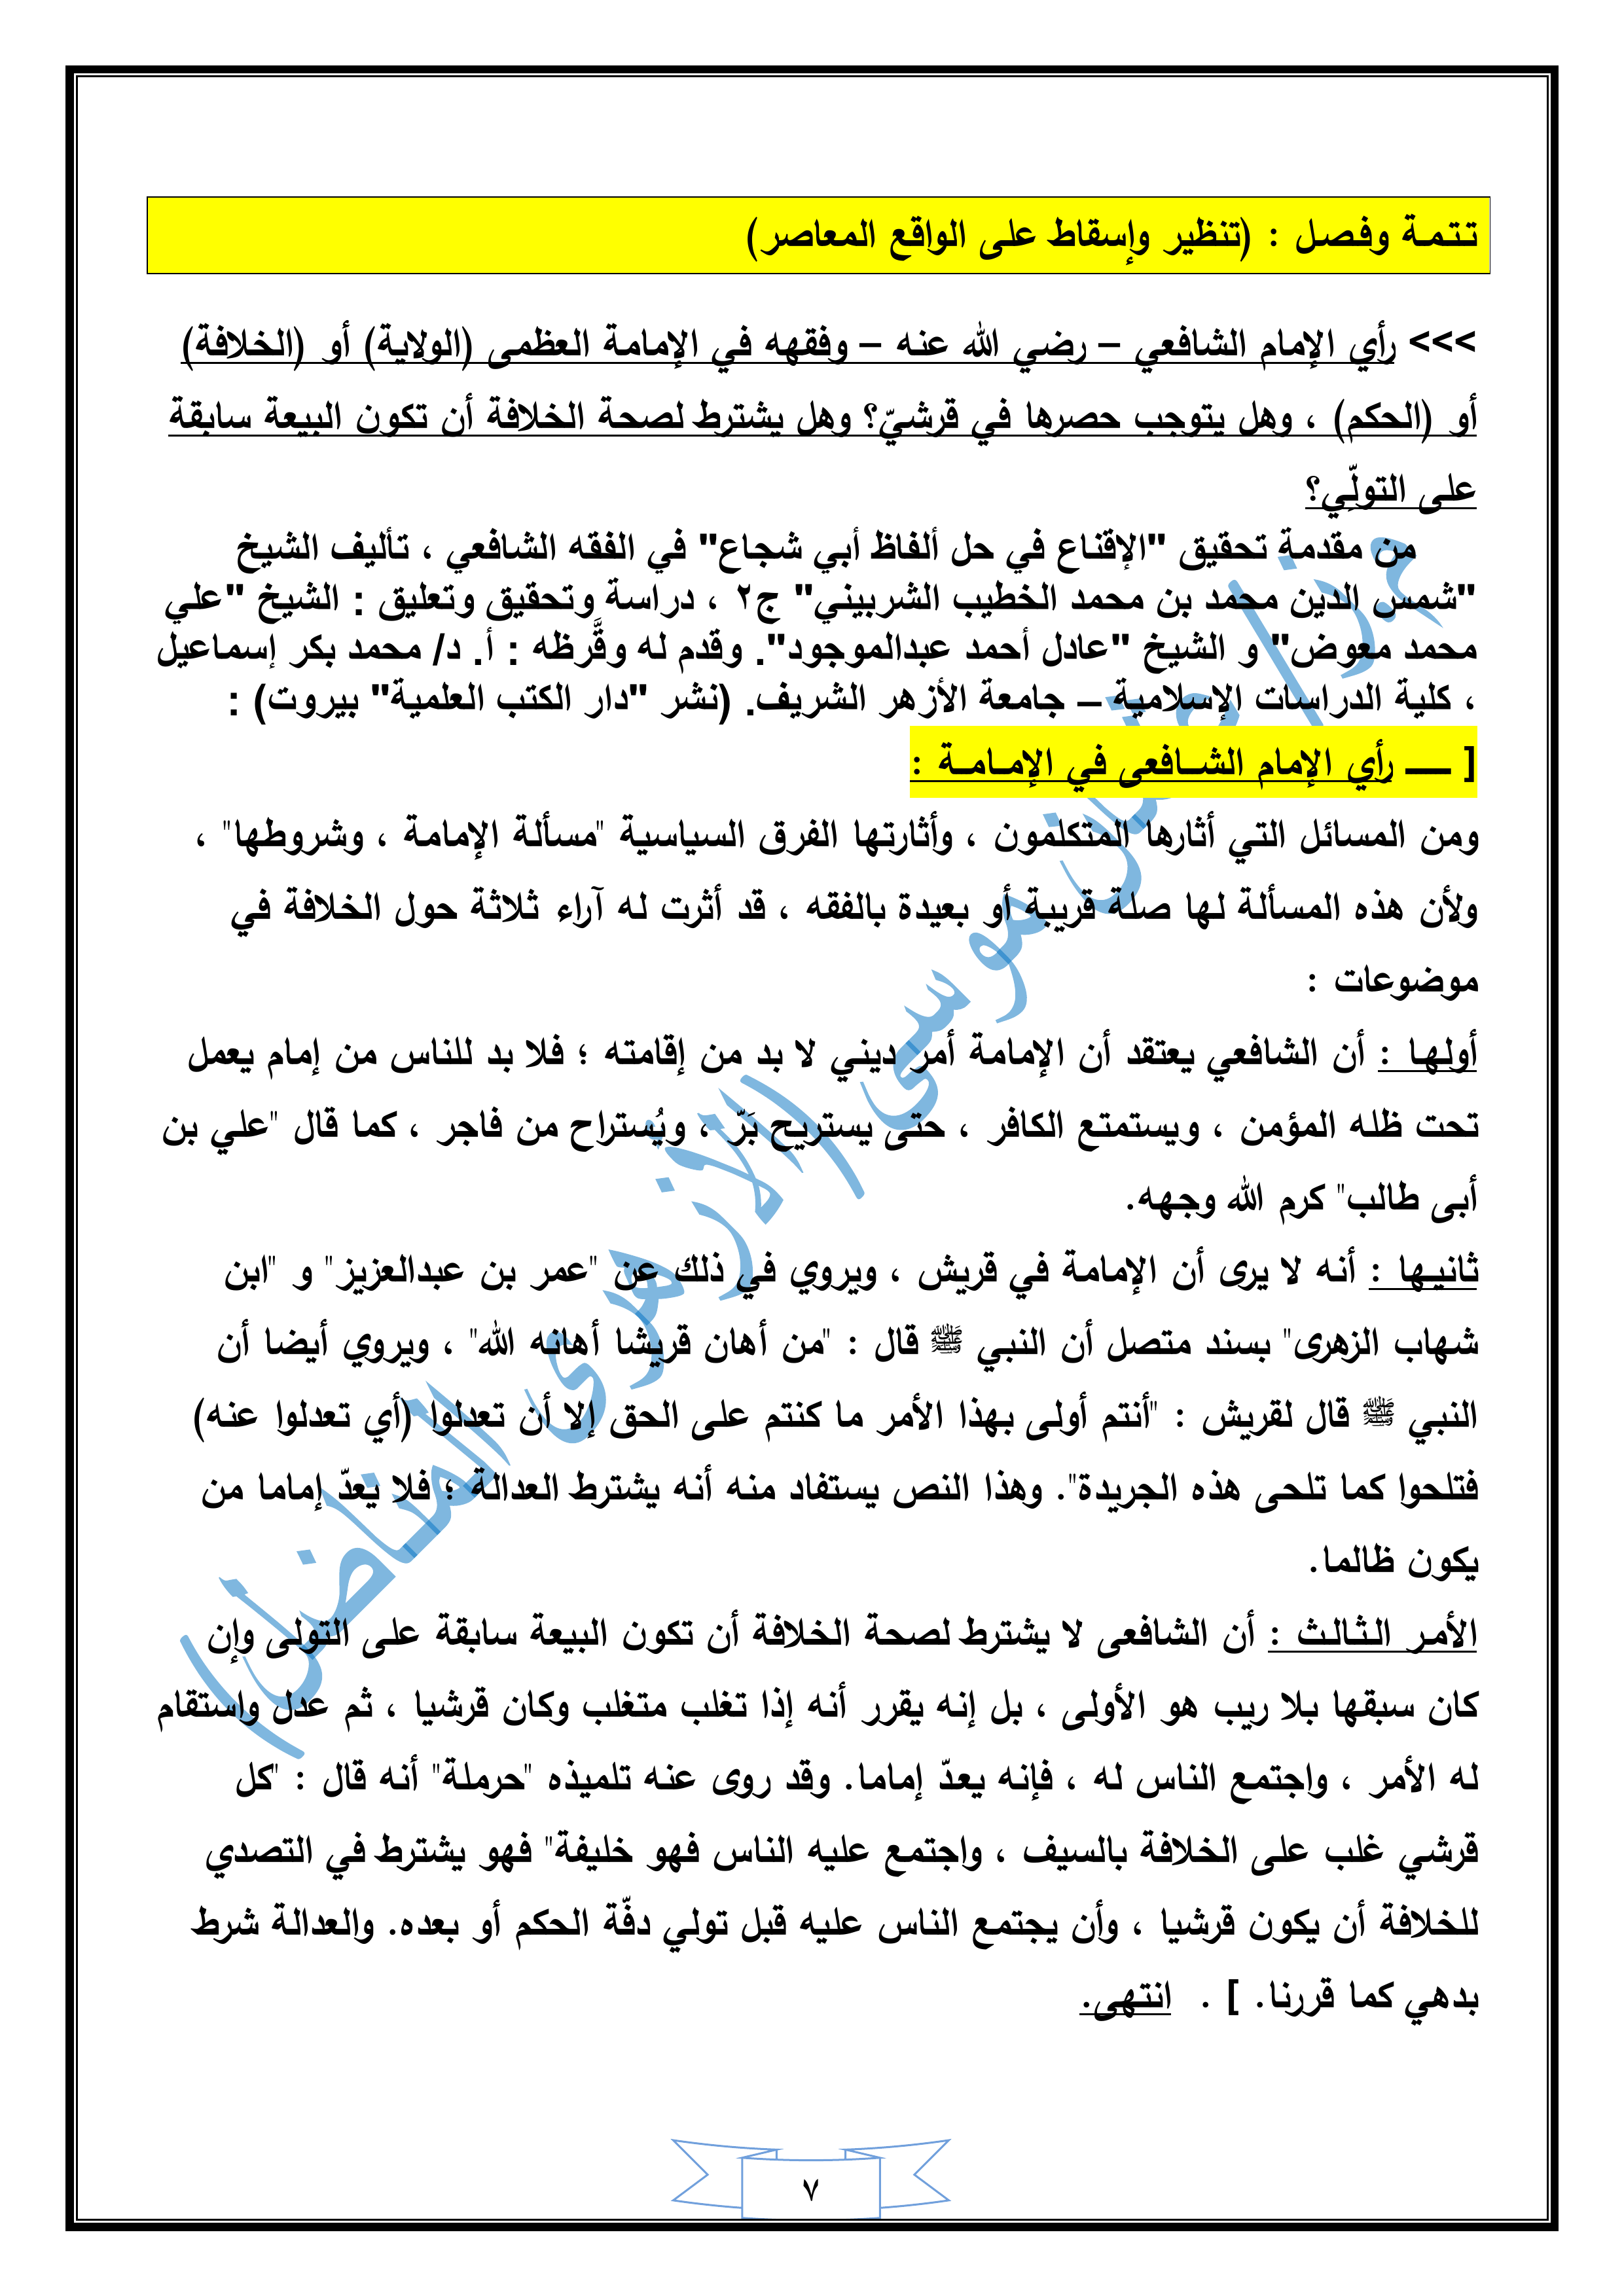 تـتـمـة وفـصـل : (تنظير وإسقاط على الواقع المعاصر)
>>> رأي الإمام الشافعي – رضي الله عنه – وفقهه في الإمامة العظمى (الولاية) أو (الخلافة)
أو (الحكم) ، وهل يتوجب حصرها في قرشيّ؟ وهل يشترط لصحة الخلافة أن تكون البيعة سابقة
على التولِّي؟
من مقدمة تحقيق "الإقناع في حل ألفاظ أبي شجاع" في الفقه الشافعي ، تأليف الشيخ
"شمس الدين محمد بن محمد الخطيب الشربيني" ج٢ ، دراسة وتحقيق وتعليق : الشيخ "علي
محمد معوض" و الشيخ "عادل أحمد عبدالموجود". وقدم له وقَّرظه : أ. د/ محمد بكر إسماعيل
، كلية الدراسات الإسلامية – جامعة الأزهر الشريف. (نشر "دار الكتب العلمية" بيروت) :
[ ــــ رأي الإمام الشــافعى في الإمـامـة :
ومن المسائل التي أثارها المتكلمون ، وأثارتها الفرق السياسية "مسألة الإمامة ، وشروطها" ،
ولأن هذه المسألة لها صلة قريبة أو بعيدة بالفقه ، قد أثرت له آراء ثلاثة حول الخلافة في
موضوعات :
أولـهـا : أن الشافعي يعتقد أن الإمامة أمر ديني لا بد من إقامته ؛ فلا بد للناس من إمام يعمل
تحت ظله المؤمن ، ويستمتع الكافر ، حتى يستريح بَرّ ، ويُستراح من فاجر ، كما قال "علي بن
أبى طالب" كرم الله وجهه.
ثانيـها : أنه لا يرى أن الإمامة في قريش ، ويروي في ذلك عن "عمر بن عبدالعزيز" و "ابن
شهاب الزهرى" بسند متصل أن النبي ﷺ قال : "من أهان قريشا أهانه الله" ، ويروي أيضا أن
النبي ﷺ قال لقريش : "أنتم أولى بهذا الأمر ما كنتم على الحق إلا أن تعدلوا (أي تعدلوا عنه)
فتلحوا كما تلحى هذه الجريدة". وهذا النص يستفاد منه أنه يشترط العدالة ؛ فلا يعدّ إماما من
يكون ظالما.
الأمـر الـثـالـث : أن الشافعى لا يشترط لصحة الخلافة أن تكون البيعة سابقة على التولى وإن
كان سبقها بلا ريب هو الأولى ، بل إنه يقرر أنه إذا تغلب متغلب وكان قرشيا ، ثم عدل واستقام
له الأمر ، واجتمع الناس له ، فإنه يعدّ إماما. وقد روى عنه تلميذه "حرملة" أنه قال : "كل
قرشي غلب على الخلافة بالسيف ، واجتمع عليه الناس فهو خليفة" فهو يشترط في التصدي
للخلافة أن يكون قرشيا ، وأن يجتمع الناس عليه قبل تولي دفّة الحكم أو بعده. والعدالة شرط
بدهي كما قررنا. ] . انتهى.
موسى (الأزهرى المناضل)
٧